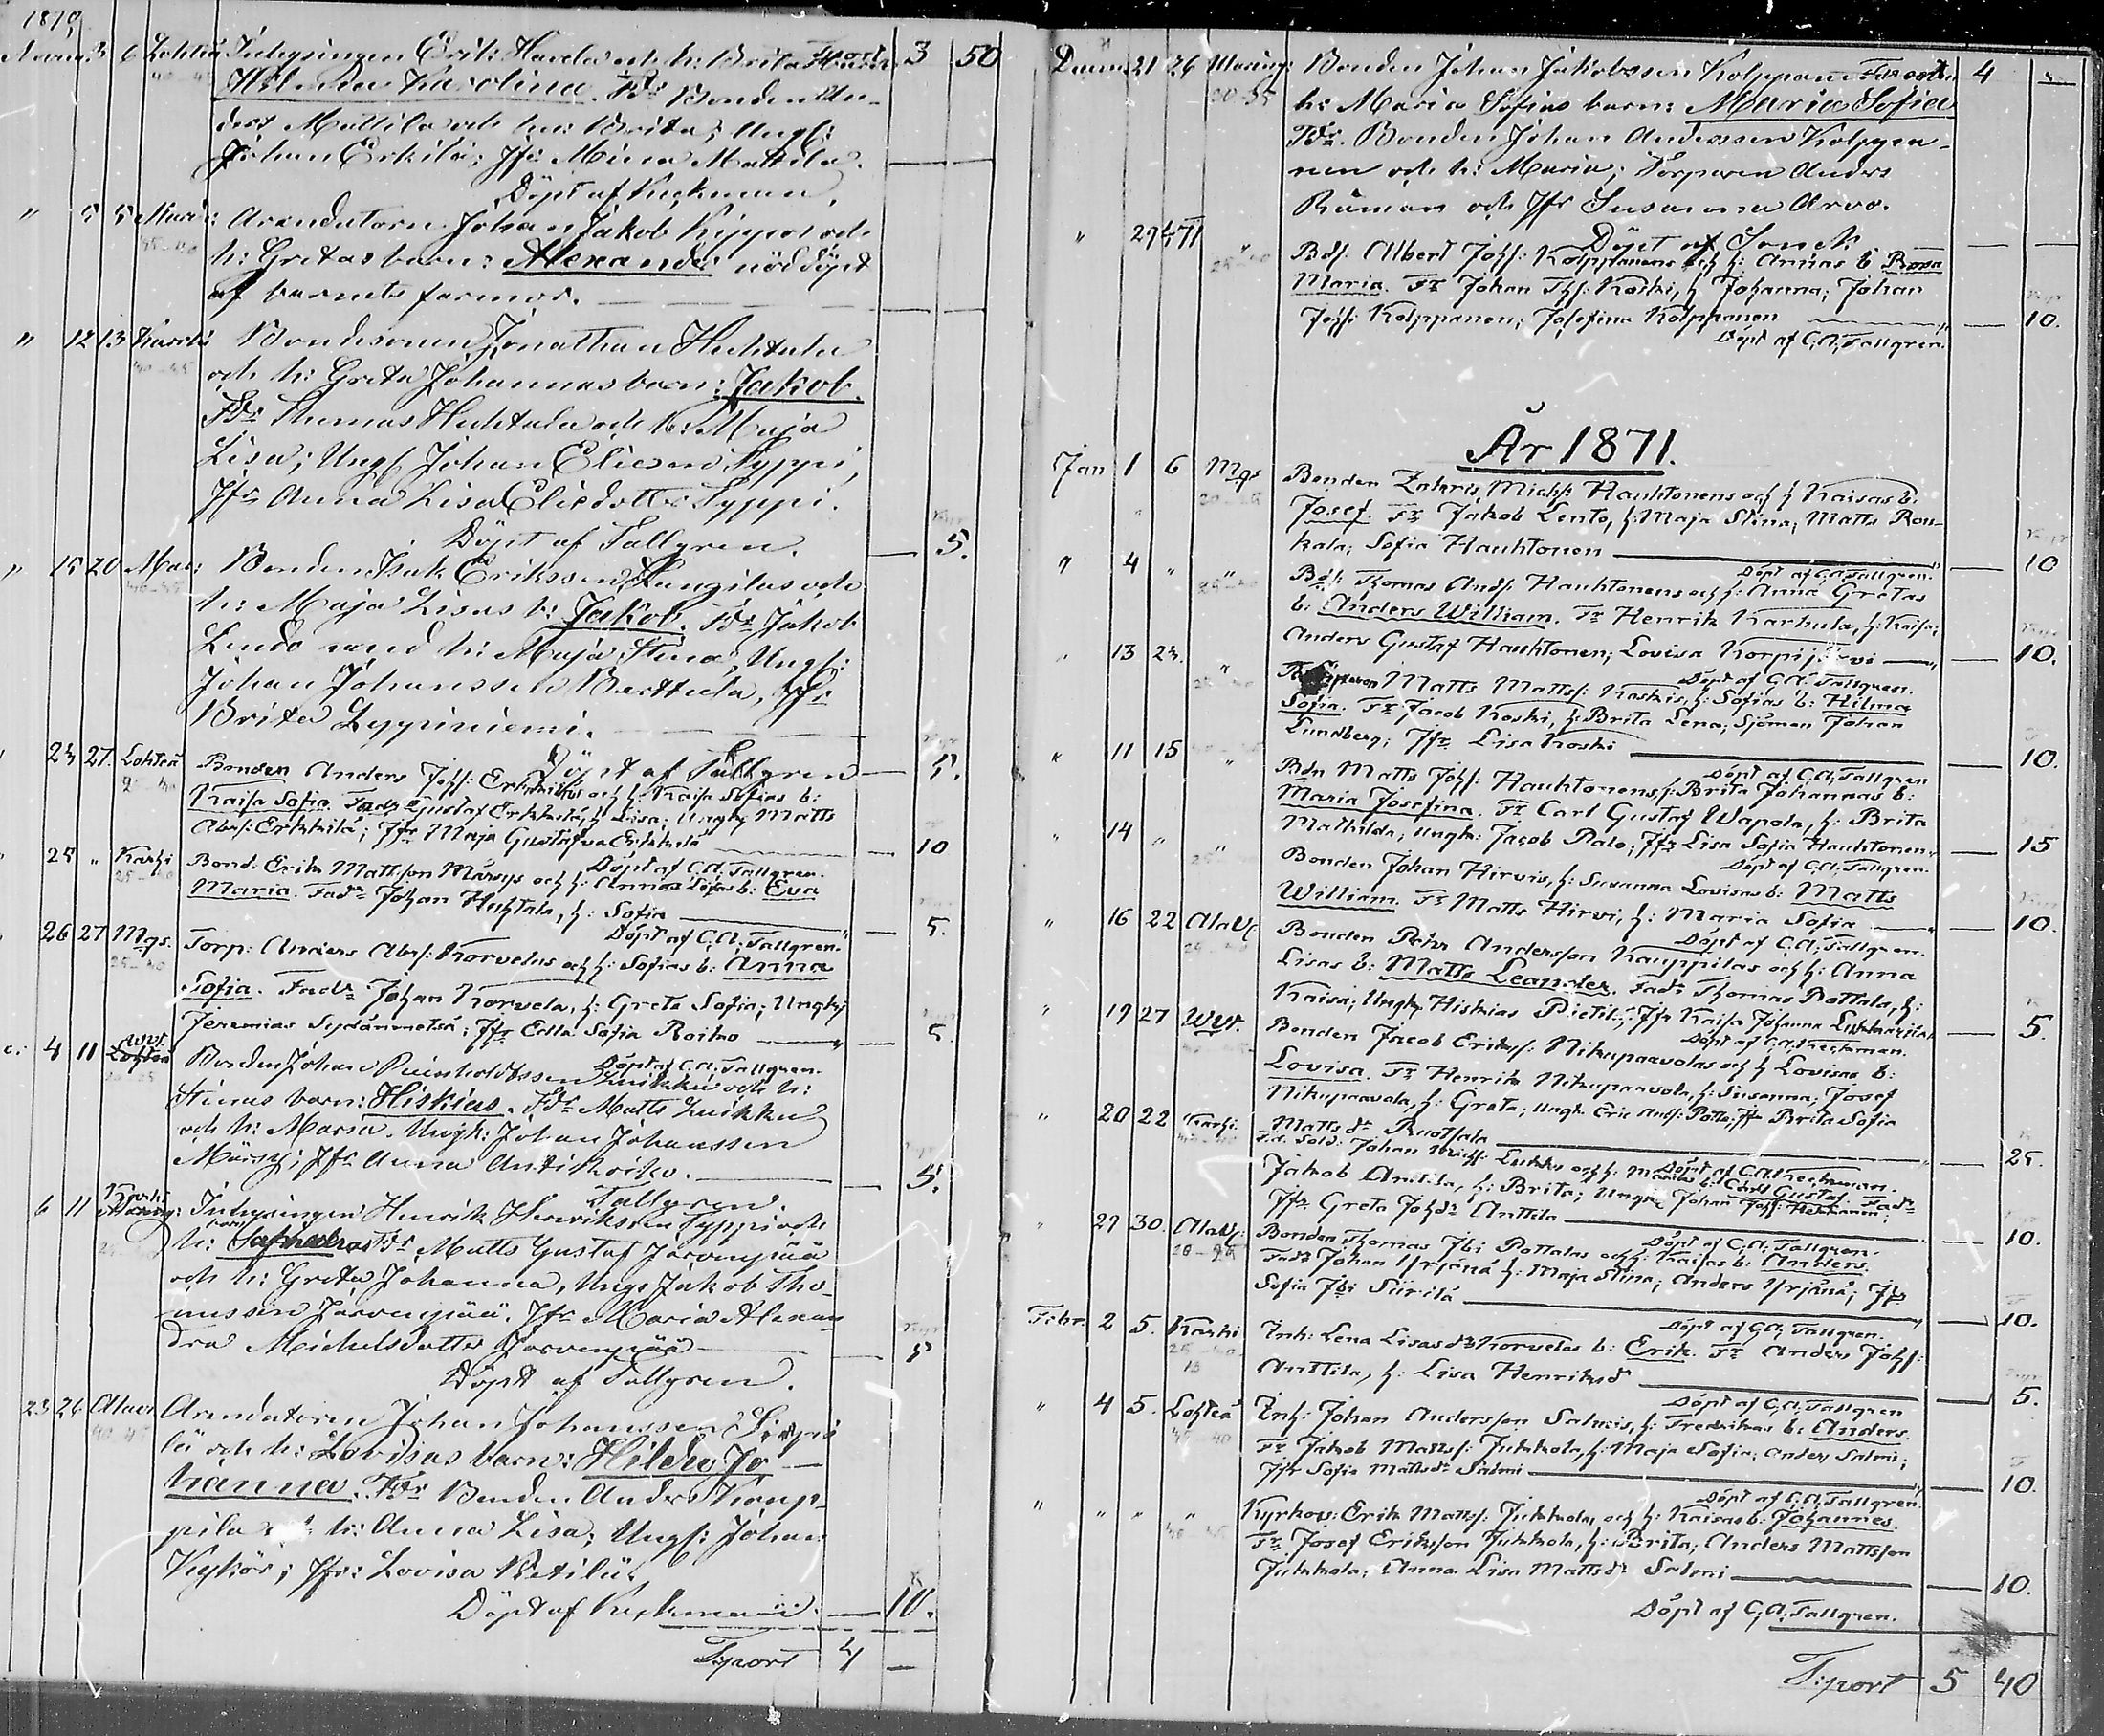 1870
3 6 Lohteå Inhysingen Erik och h: Brita 3 50
Helena Karolina. Fdr Bonden An-
ders Mattila och hu: Brita; Ungk:
Johan Erkilä; Jfr: Mina Mattila.
Döpt af Keckman.
" 5 5 Arendatorn Johan Jakob och
h: Gretas barn: Alexander nöddöpt
af barnets farmor.
" 12 13 Bondesonen Jonathan Huhtala
och h: Greta Johannas barn: Jakob.
Fdr Thomas Huhtala och h: Maja
Lisa; Ungk Johan Eliesen Typpi,
Jfr Anna Lisa Eliedotter Typpi.
Döpt af Tallgren. 5.
" 15 20 Bonden Isak Erikssen och
h: Maja Lisas b: Jakob. Fdr Jakob
h: Maja Stina; Ungk:
Johan Johanssen Jfr:
Brita Lyppiniemi.
Döpt af Tallgren 5.
23 27. Lohteå Bonden Anders Johs: och h: Kaisa Sofias b:
Kaisa Sofia. Fadr Gustaf Erkkilä, h: Lisa; Ungk Matts
Abrs: Erkkilä; Jfr Maja Gustafva Erkkilä 10
Döpt af C.A. Tallgren.
25 " Karhi Bond. Erik Mattsson Märsys och h: Annas b: Eva
Maria. Fadr Johan Huhtala, h: Sofia 5.
Döpt af C.A. Tallgren.
26 27 Mgs. Torp: Anders Abrs: Korvelas och h: Sofias b: Anna
Sofia. Fadr Johan Korvela, h: Greta Sofia; Ungk:
Jeremias Sydänmetsä; Jfr Edla Sofia Roiko 5.
Döpt af C.A. Tallgren.
4 11 Bonden Johan Reinholdtssen och h:
Stinas barn: Hiskias. Fdr Matts
och h: Maria. Ungk: Johan Johanssen
Märsy; Jfr Anna 5.
Tallgren.
6 11 Inhysingen Henrik Henriksson Typpi och
h: Fdr Matts Gustaf Järvenpää
och h: Greta Johanna, Ungk Jakob Tho-
massen Järvenpää. Jfr Maria Alexan-
dra Michelsdotter Järvenpää 5
Döpt af Tallgren.
23 26 Alavi Arendatoren Johan Johanssen
och h: Lovisas barn: Hilda Jo-
hanna. Fdr Bonden Anders Kaup-
pila och h: Anna Lisa; Ungk: Johan
Jfr: Lovisa
Döpt af Keckman. 10.
Tsport 4 —
21 26 Bonden Johan Jakobssen Kolppanen och 4 —
h: Maria Sofias barn: Maria Sofia
Fdr. Bonden Johan Anderssen Kolppa-
nen och h: Maria; Torparen Anders
Råman och Jfr Susanna Arvo.
Döpt af
" 29 Bds: Albert Johs: Kolppanens och h: Annas b: Rosa
Maria. Fr Johan Koski, h: Johanna; Johan
Johs: Kolppanen; Josefina Kolppanen 10.
Döpt af C.A. Tallgren.
År 1871.
Jan 1 6 Mgs Bonden Zakris Michs: Hauhtonens och h Kaisas b:
Josef. Fr Jakob Lento, h: Maja Stina; Matts Ron-
kala; Sofia Hauhtonen 10
Döpt af C.A. Tallgren.
" 4 " " Bds: Thomas Ands: Hauhtonens och h: Anna Gretas
b: Anders William. Fr Henrik Karhula, h: Kaisa;
Anders Gustaf Hauhtonen; Lovisa Korpijärvi 10.
Döpt af C.A. Tallgren.
" 13 23. " Matts Matts: Koskis, h: Sofias b: Hilma
Sofia. Fr Jacob Koski, h: Brita Lena; Sjöman Johan
Lundberg; Jfr Lisa Koski 10.
Döpt af C.A. Tallgren
" 11 15 " Bdn Matts Johs: Hauhtonens, h: Brita Johannas b:
Maria Josefina. Fr Carl Gustaf Wapola, h: Brita
Mathilda; Ungk: Jacob Palo; Jfr Lisa Sofia Hauhtonen 15
Döpt af C.A. Tallgren.
" 14 " " Bonden Johan Hirvis, h: Susanna Lovisas b: Matts
William. Fr Matts Hirvi, h: Maria Sofia 10.
Döpt af C.A. Tallgren.
" 16 22 Alav. Bonden Pehr Andersson Kauppilas och h: Anna
Lisas b: Matts Leander. Fadr Thomas Pottala, h:
Kaisa; Ungk Hiskias Pietilä; Jfr Kaisa Johanna 5.
Döpt af C.A. Keckman.
" 19 27 Wvt. Bonden Jacob Eriks: Nikupaavolas och h Lovisas b:
Lovisa. Fr Henrik Nikupaavola, h: Susanna; Josef
Nikupaavola, h: Greta; Ungk Eric Ands: Jfr Brita Sofia
Matts dr Ruotsala 25.
Döpt af C.A. Keckman.
" 20 22 Karhi. Fd. Sold: Johan och h: b: Carl Gustaf. Fadr
Jakob Anttila, h: Brita; Ungk Johan
Jfr Greta Johdr Anttila 10.
Döpt af C.A. Tallgren.
" 29 30. Alav: Bonden Thomas Jbi Pottalas och h: Kaisas b: Anders.
Fadr Johan Yrjänä h: Maja Stina; Anders Yrjänä; Jfr
Sofia Jbi Siirilä 10.
Döpt af C.A. Tallgren.
Febr. 2 5. Karhi Inh: Lena Lisas dr Korvelas b: Erik. Fr Anders Johs:
Anttila, h: Lisa Henriksd 5.
Döpt af C.A. Tallgren
" 4 5. Lohteå Inh: Johan Andersson Salmis, h: Fredrikas b: Anders.
Fr Jakob Matts: Jukkola, h: Maja Sofia; Anders Salmi;
Jfr Sofia Mattsdr Salmi 10.
Döpt af C.A. Tallgren.
" " " Kyrkov: Erik Matts: Jukkola, och h: Kaisas b: Johannes.
Fr Josef Eriksson Jukkola, h: Brita; Anders Mattsson
Jukkola; Anna Lisa Mattsdr Salmi 10.
Döpt af C.A. Tallgren.
T:port 5 40